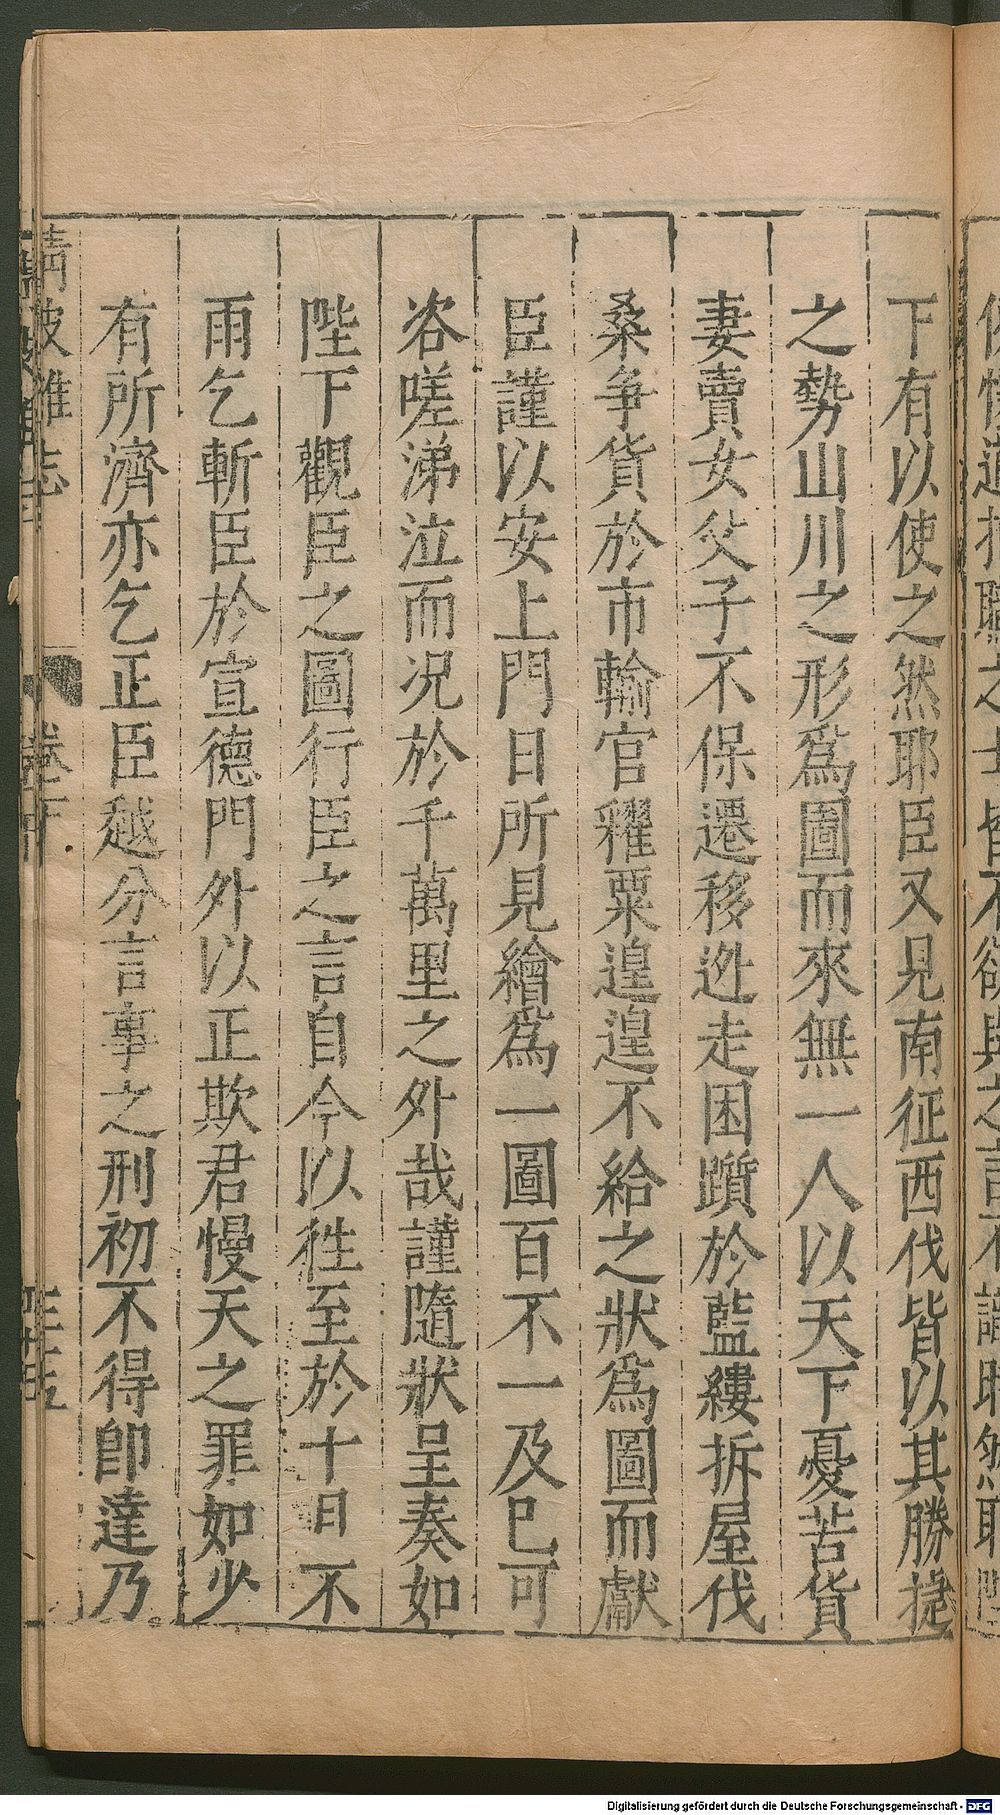 下有以使之然耶臣又見南征西伐皆以其勝捷
之勢山川之形爲圖而來無一人以天下憂苦貨
妻賣女父子不保遷移逃走困躓於藍縷拆屋伐
桑爭貨於市輸官糴粟遑遑不給之狀爲圖而獻
臣謹以安上門日所見繪爲一圖百不一及已可
咨嗟涕泣而况於千萬里之外哉謹隨狀呈奏如
陛下觀臣之圖行臣之言自今以徃至於十日不
雨乞斬臣於宣德門外以正欺君慢天之罪如少
有所濟亦乞正臣越分言事之刑初不得卽達乃
清波雜志
卷下
Digitalisierung gefördert durch die Deutsche Forschungsgemeinschaft - DFG